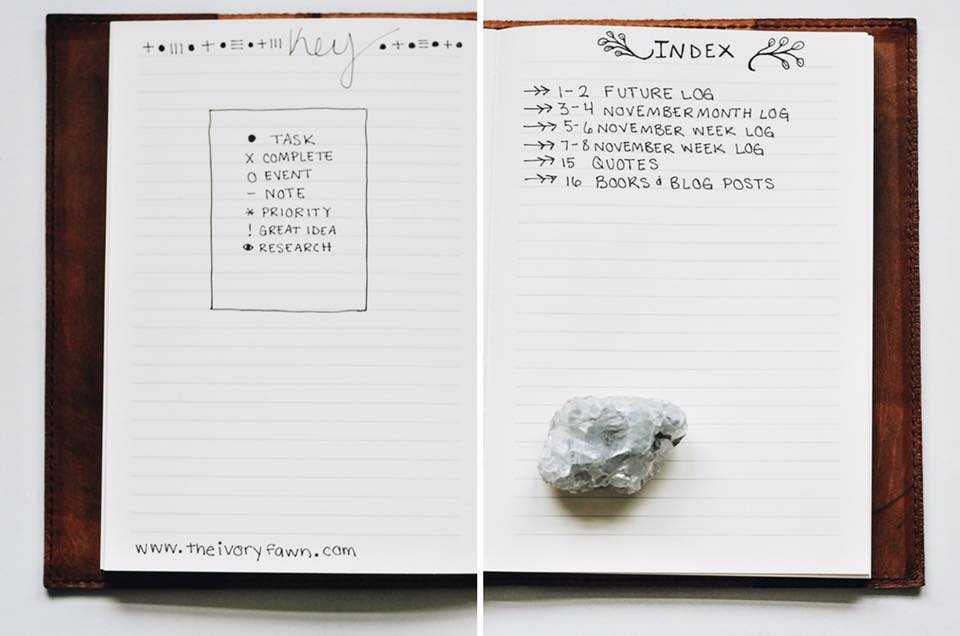 Key
• TASK
X COMPLETE
O EVENT
– NOTE
* PRIORITY
! GREAT IDEA
👁 RESEARCH
www.theivoryfawn.com
INDEX
→» 1-2 FUTURE LOG
→» 3-4 NOVEMBER MONTH LOG
→» 5-6 NOVEMBER WEEK LOG
→» 7-8 NOVEMBER WEEK LOG
→» 15 QUOTES
→» 16 BOOKS & BLOG POSTS